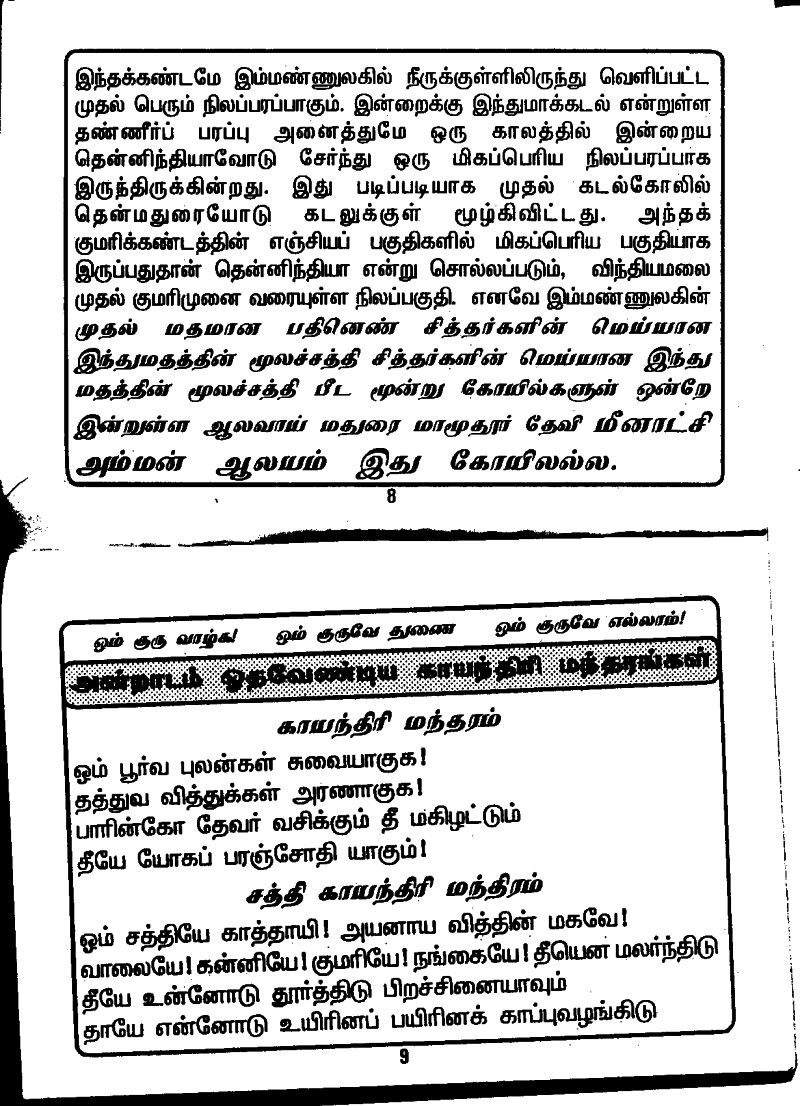 இந்தக்கண்டமே இம்மண்ணுலகில் நீருக்குள்ளிலிருந்து வெளிப்பட்ட
முதல் பெரும் நிலப்பரப்பாகும். இன்றைக்கு இந்துமாக்கடல் என்றுள்ள
தண்ணீர்ப் பரப்பு அனைத்துமே ஒரு காலத்தில் இன்றைய
தென்னிந்தியாவோடு சேர்ந்து ஒரு மிகப்பெரிய நிலப்பரப்பாக
இருந்திருக்கின்றது. இது படிப்படியாக முதல் கடல்கோலில்
தென்மதுரையோடு கடலுக்குள் மூழ்கிவிட்டது. அந்தக்
குமரிக்கண்டத்தின் எஞ்சியப் பகுதிகளில் மிகப்பெரிய பகுதியாக
இருப்பதுதான் தென்னிந்தியா என்று சொல்லப்படும், விந்தியமலை
முதல் குமரிமுனை வரையுள்ள நிலப்பகுதி. எனவே இம்மண்ணுலகின்
முதல் மதமான பதினெண் சித்தர்களின் மெய்யான
இந்துமதத்தின் மூலச்சத்தி சித்தர்களின் மெய்யான இந்து
மதத்தின் மூலச்சத்தி பீட மூன்று கோயில்களுள் ஒன்றே
இன்றுள்ள ஆலவாய் மதுரை மாமூதூர் தேவி மீனாட்சி
அம்மன் ஆலயம் இது கோயிலல்ல.
8
ஓம் குரு வாழ்க! ஓம் குருவே துணை ஓம் குருவே எல்லாம்!
அன்றாடம் ஓதவேண்டிய காயந்திரி மந்தரங்கள்
காயந்திரி மந்தரம்
ஓம் பூர்வ புலன்கள் சுவையாகுக!
தத்துவ வித்துக்கள் அரணாகுக!
பாரின்கோ தேவர் வசிக்கும் தீ மகிழட்டும்
தீயே யோகப் பரஞ்சோதி யாகும்!
சத்தி காயந்திரி மந்திரம்
ஓம் சத்தியே காத்தாயி! அயனாய வித்தின் மகவே!
வாலையே! கன்னியே! குமரியே! நங்கையே! தீயென மலர்ந்திடு
தீயே உன்னோடு தூர்த்திடு பிறச்சினையாவும்
தாயே என்னோடு உயிரினப் பயிரினக் காப்புவழங்கிடு
9